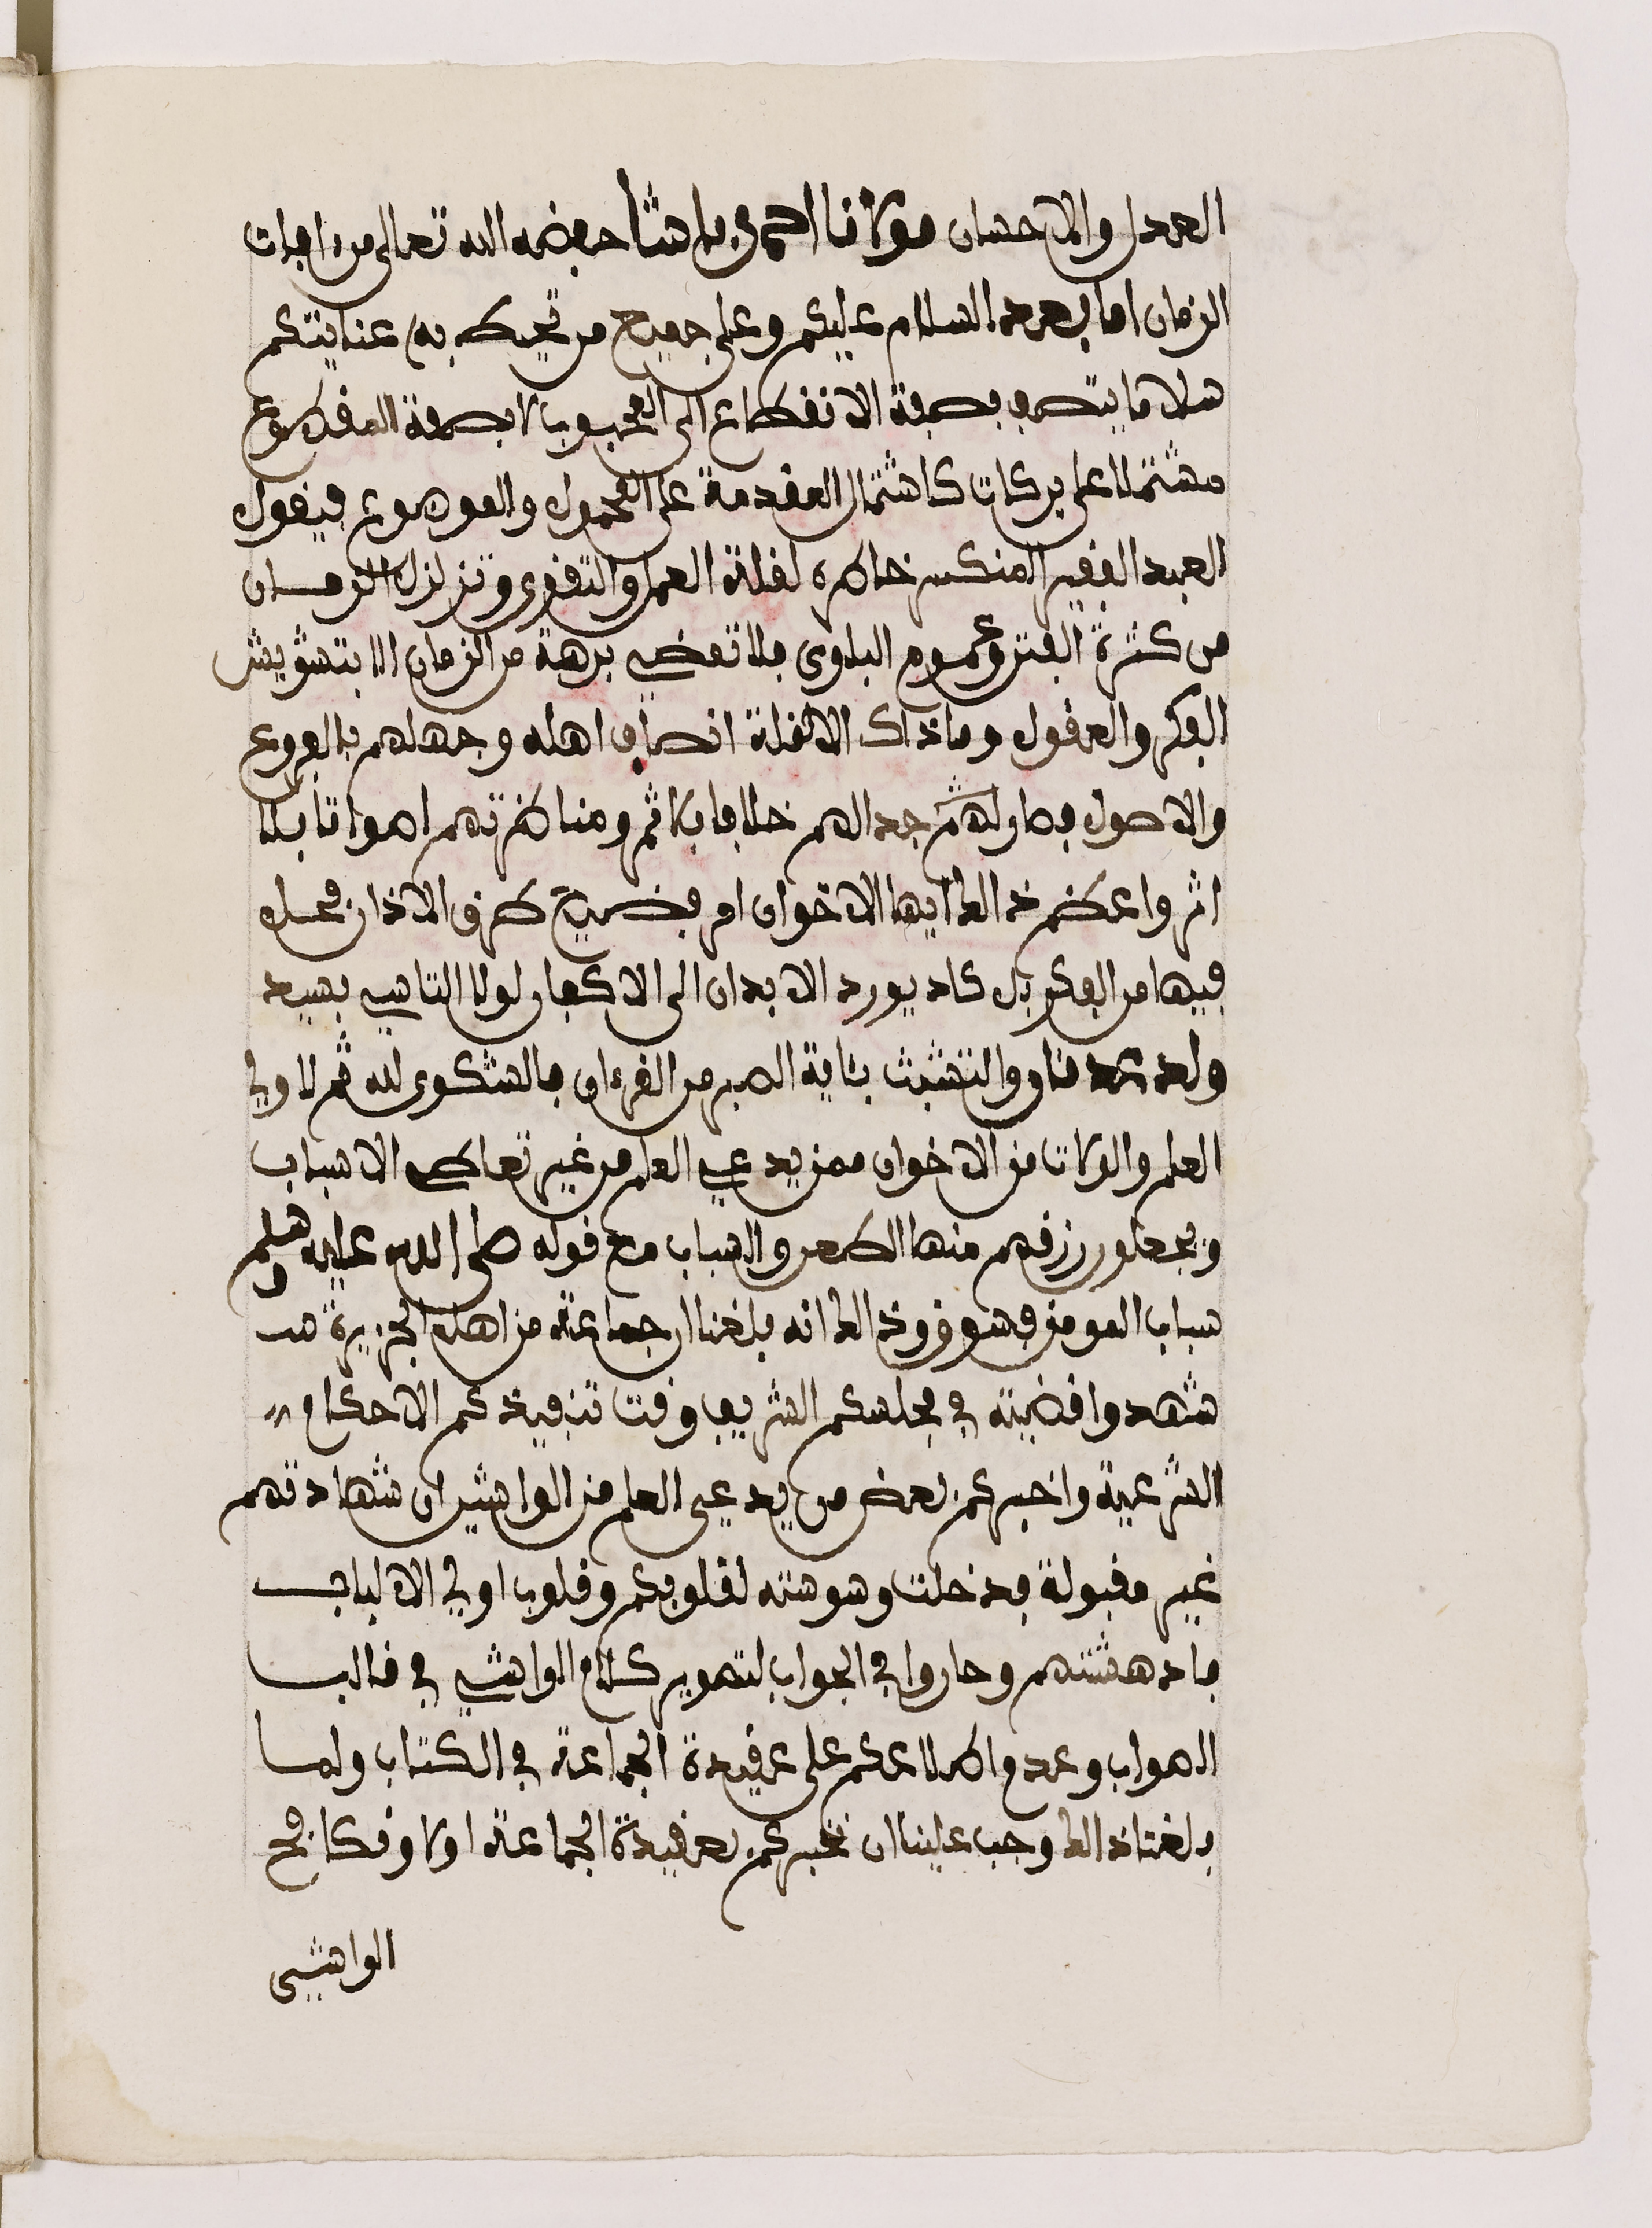 العدل والاحسان مولانا احمد باشا حفظه الله تعالى من افات
الزمان اما بعد السلام عليكم وعلى جميع من تحيط به عنايتكم
سلاما يتصف بصفة الانقطاع الى المحبوب لا بصفة المقطوع
مشتملا على بركات كاشتمال المقدمة على المحمول والموضوع فيقول
العبد الفقير المنكسر خاطره لقلة العمل والتقوى وتزلزل الزمان
من كثرة الفتن وعموم البلوى فلا تمضي برهة من الزمان الا بتشويش
الفكر والعقول وما ذاك الا لقلة انصاف اهله وجهلهم بالفروع
والاصول فصار لهم ثم جدالهم خلافا بلا ثمر ومناظرتهم اصواتا بلا
اثر واعظم ذالك ايها الاخوان امر فضيع طرق الاذان فحل
فيها من الفكر بل كاد يورد الابدان الى الاكفان لولا التاسي بسيد
ولد عدنان والتشبث بئاية الصبر من القرءان فالشكوى لله ثم لاولي
العلم والولات من الاخوان ممن يدعي العلم من غير تعاطي الاسباب
ويجعلون رزقهم منها الطعن والسباب مع قوله صلى الله عليه وسلم
سباب المومن فسوق وذالك انه بلغنا ان جماعة من اهل الجزيرة
شهدوا قضية في مجلسكم الشريف وقت تنفيذكم الاحكام
الشرعية واخبركم بعض من يدعي العلم من الواشين ان شهادتهم
غير مقبولة فدخلت وسوسته لقلوبكم وقلوب اولي الالباب
فادهشتهم وحاروا في الجواب لتصوير كلام الواشي في قالب
الصواب وعدم اطلاعكم على عقيدة الجماعة في الكتاب ولما
بلغنا ذالك وجب علينا ان نخبركم بعقيدة الجماعة اولا ونكافح
الواشي